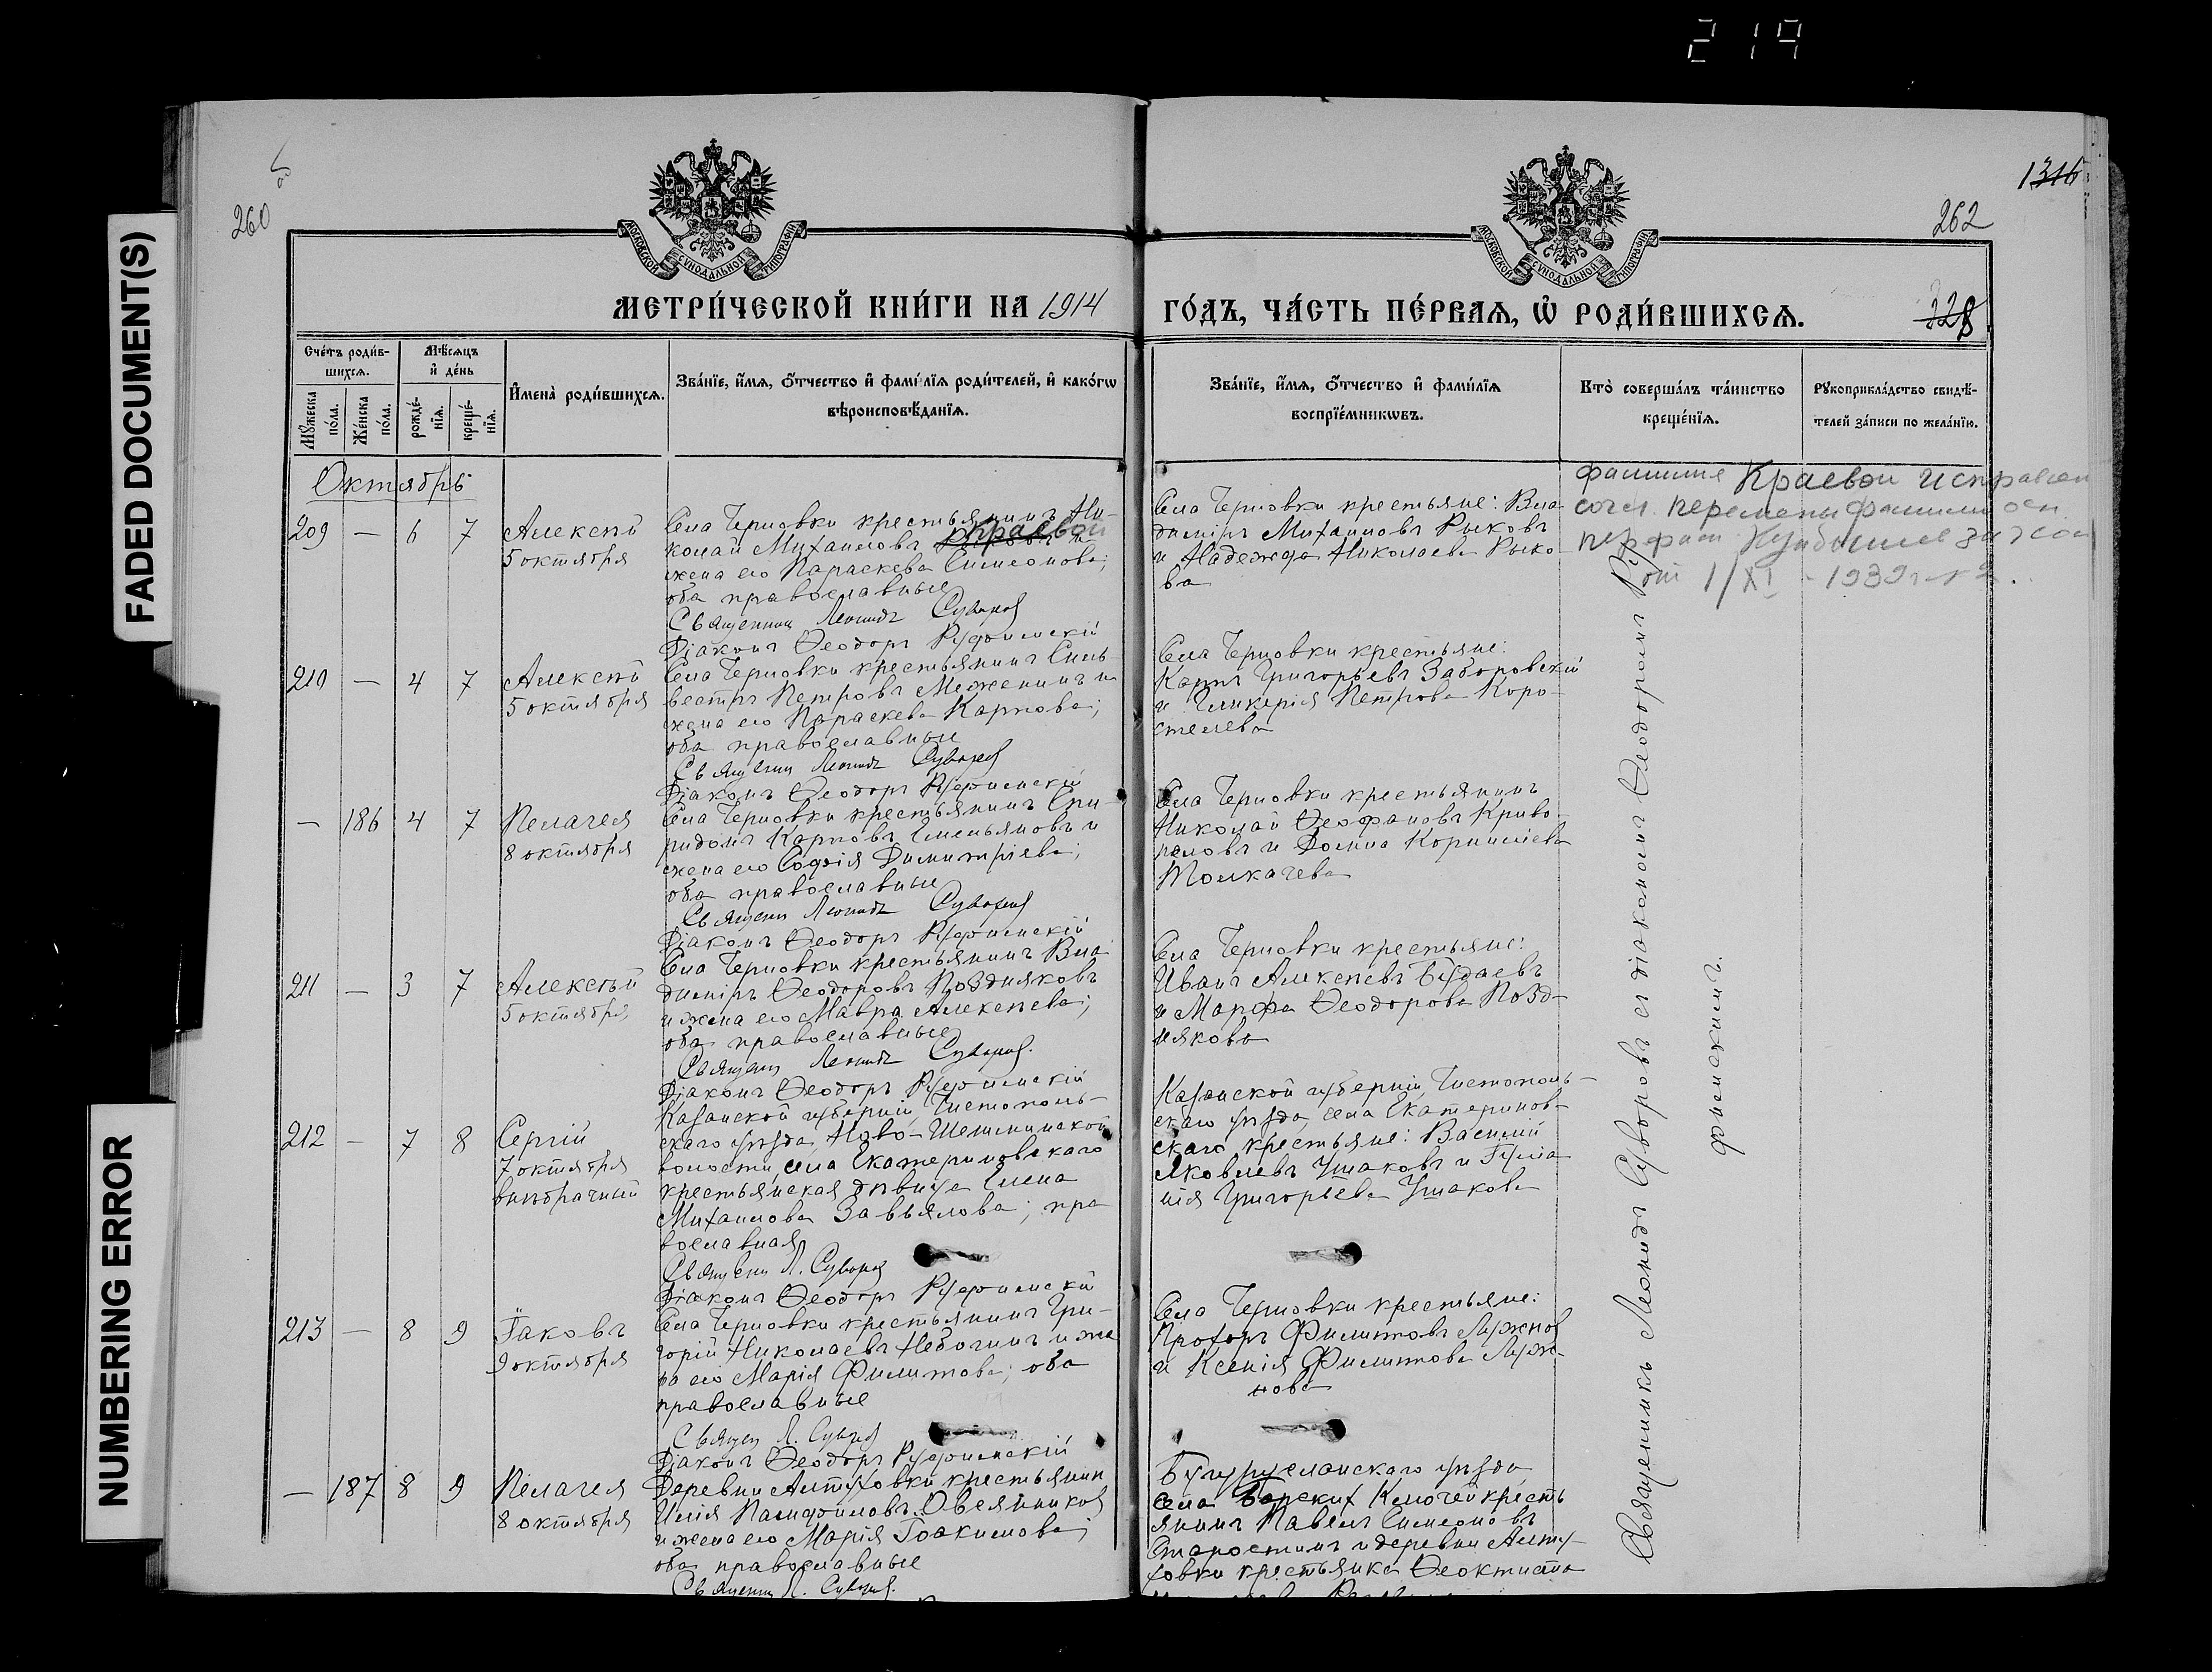 219
FADED DOCUMENT(S)
NUMBERING ERROR
260
1316
262
328
МОСКОВСКОЙ СѴНОДАЛЬНОЙ ТИПОГРАФІИ
МОСКОВСКОЙ СѴНОДАЛЬНОЙ ТИПОГРАФІИ
МЕТРИ́ЧЕСКОЙ КНИ́ГИ НА 1914
ГО́ДЪ, ЧА́СТЬ ПЕ́РВАЯ, Ѡ РОДИ́ВШИХСЯ.
Сче́тъ роди́в-
шихся.
Мѣ́сяцъ
и де́нь
Му́жеска
по́ла.
Же́нска
по́ла.
рожде́-
нія.
креще́-
нія.
Имена̀ роди́вшихся.
Зва́ніе, и́мя, о́тчество и фами́лія роди́телей, и како́гѡ
вѣроисповѣ́данія.
Зва́ніе, и́мя, о́тчество и фами́лія
воспріе́мникѡвъ.
Кто̀ соверша́лъ та́инство
креще́нія.
Рукоприкла́дство свидѣ́-
телей за́писи по жела́нію.
Октябрь
209 — 6 7 Алексѣй
5 октября
Села Черновки крестьянинъ Ни-
колай Михаиловъ Краевой и
жена его Параскева Симеонова;
оба православные
Священникъ Леонидъ Суворовъ
Діаконъ Ѳеодоръ Руфимскій
Села Черновки крестьяне: Вла
диміръ Михаиловъ Рыковъ
и Надежда Николаева Рыко
ва
фамилия Краевой исправлен
согл. перемены фамилии
от 1/XI - 1939 г. № 2.
210 — 4 7 Алексѣй
5 октября
Села Черновки крестьянинъ Силь-
вестръ Петровъ Меженинъ и
жена его Параскева Карпова;
оба православные
Священн Леонидъ Суворовъ
Діаконъ Ѳеодоръ Руфимскій
Села Черновки крестьяне:
Карпъ Григорьевъ Заборовскій
и Гликерія Петрова Коро-
стелева
— 186 4 7 Пелагея
8 октября
Села Черновки крестьянинъ Спи-
ридонъ Карповъ Емельяновъ и
жена его Софія Димитріева;
оба православные
Священн Леонидъ Суворовъ
Діаконъ Ѳеодоръ Руфимскій
Села Черновки крестьянинъ
Николай Ѳеофановъ Криво
паловъ и Домна Корниліева
Толкачева
211 — 3 7 Алексѣй
5 октября
Села Черновки крестьянинъ Вла
диміръ Ѳеодоровъ Поздняковъ
и жена его Мавра Алексѣева;
оба православные
Священн Леонидъ Суворовъ.
Діаконъ Ѳеодоръ Руфимскій
Села Черновки крестьяне:
Иванъ Алексѣевъ Будаевъ
и Марфа Ѳеодорова Позд-
някова
212 — 7 8 Сергій
7 октября
внѣбрачный
Казанской губерніи, Чистополь-
скаго уѣзда, Ново-Шешминской
волости, села Екатериновскаго
крестьянская дѣвица Елена
Михаилова Завьялова; пра
вославная
Священ Л. Суворовъ
Діаконъ Ѳеодоръ Руфимскій
Казанской губерніи Чистополь-
скаго уѣзда, села Екатеринов-
скаго крестьяне: Василій
Яковлевъ Ушаковъ и Іулiа
нія Григорьева Ушакова
213 — 8 9 Іаковъ
9 октября
Села Черновки крестьянинъ Гри-
горій Николаевъ Небогинъ и же
на его Марія Филиппова; оба
православные
Священ Л. Суворовъ
Діаконъ Ѳеодоръ Руфимскій
Села Черновки крестьяне:
Прохоръ Филипповъ Лужнов
и Ксенія Филиппова Луж-
нова
— 187 8 9 Пелагея
8 октября
Деревни Алтуховки крестьянин
Илія Памфиловъ Овсянников
и жена его Марія Іоакимова;
оба православные
Священн Л. Суворов.
Бугурусланскаго уѣзда
села Борскихъ Ключей кресть
янинъ Павелъ Симеоновъ
Старостинъ и деревни Алту-
ховки крестьянка Ѳеоктиста
Священникъ Леонидъ Суворовъ съ діакономъ Ѳеодоромъ Ру
фимскимъ.